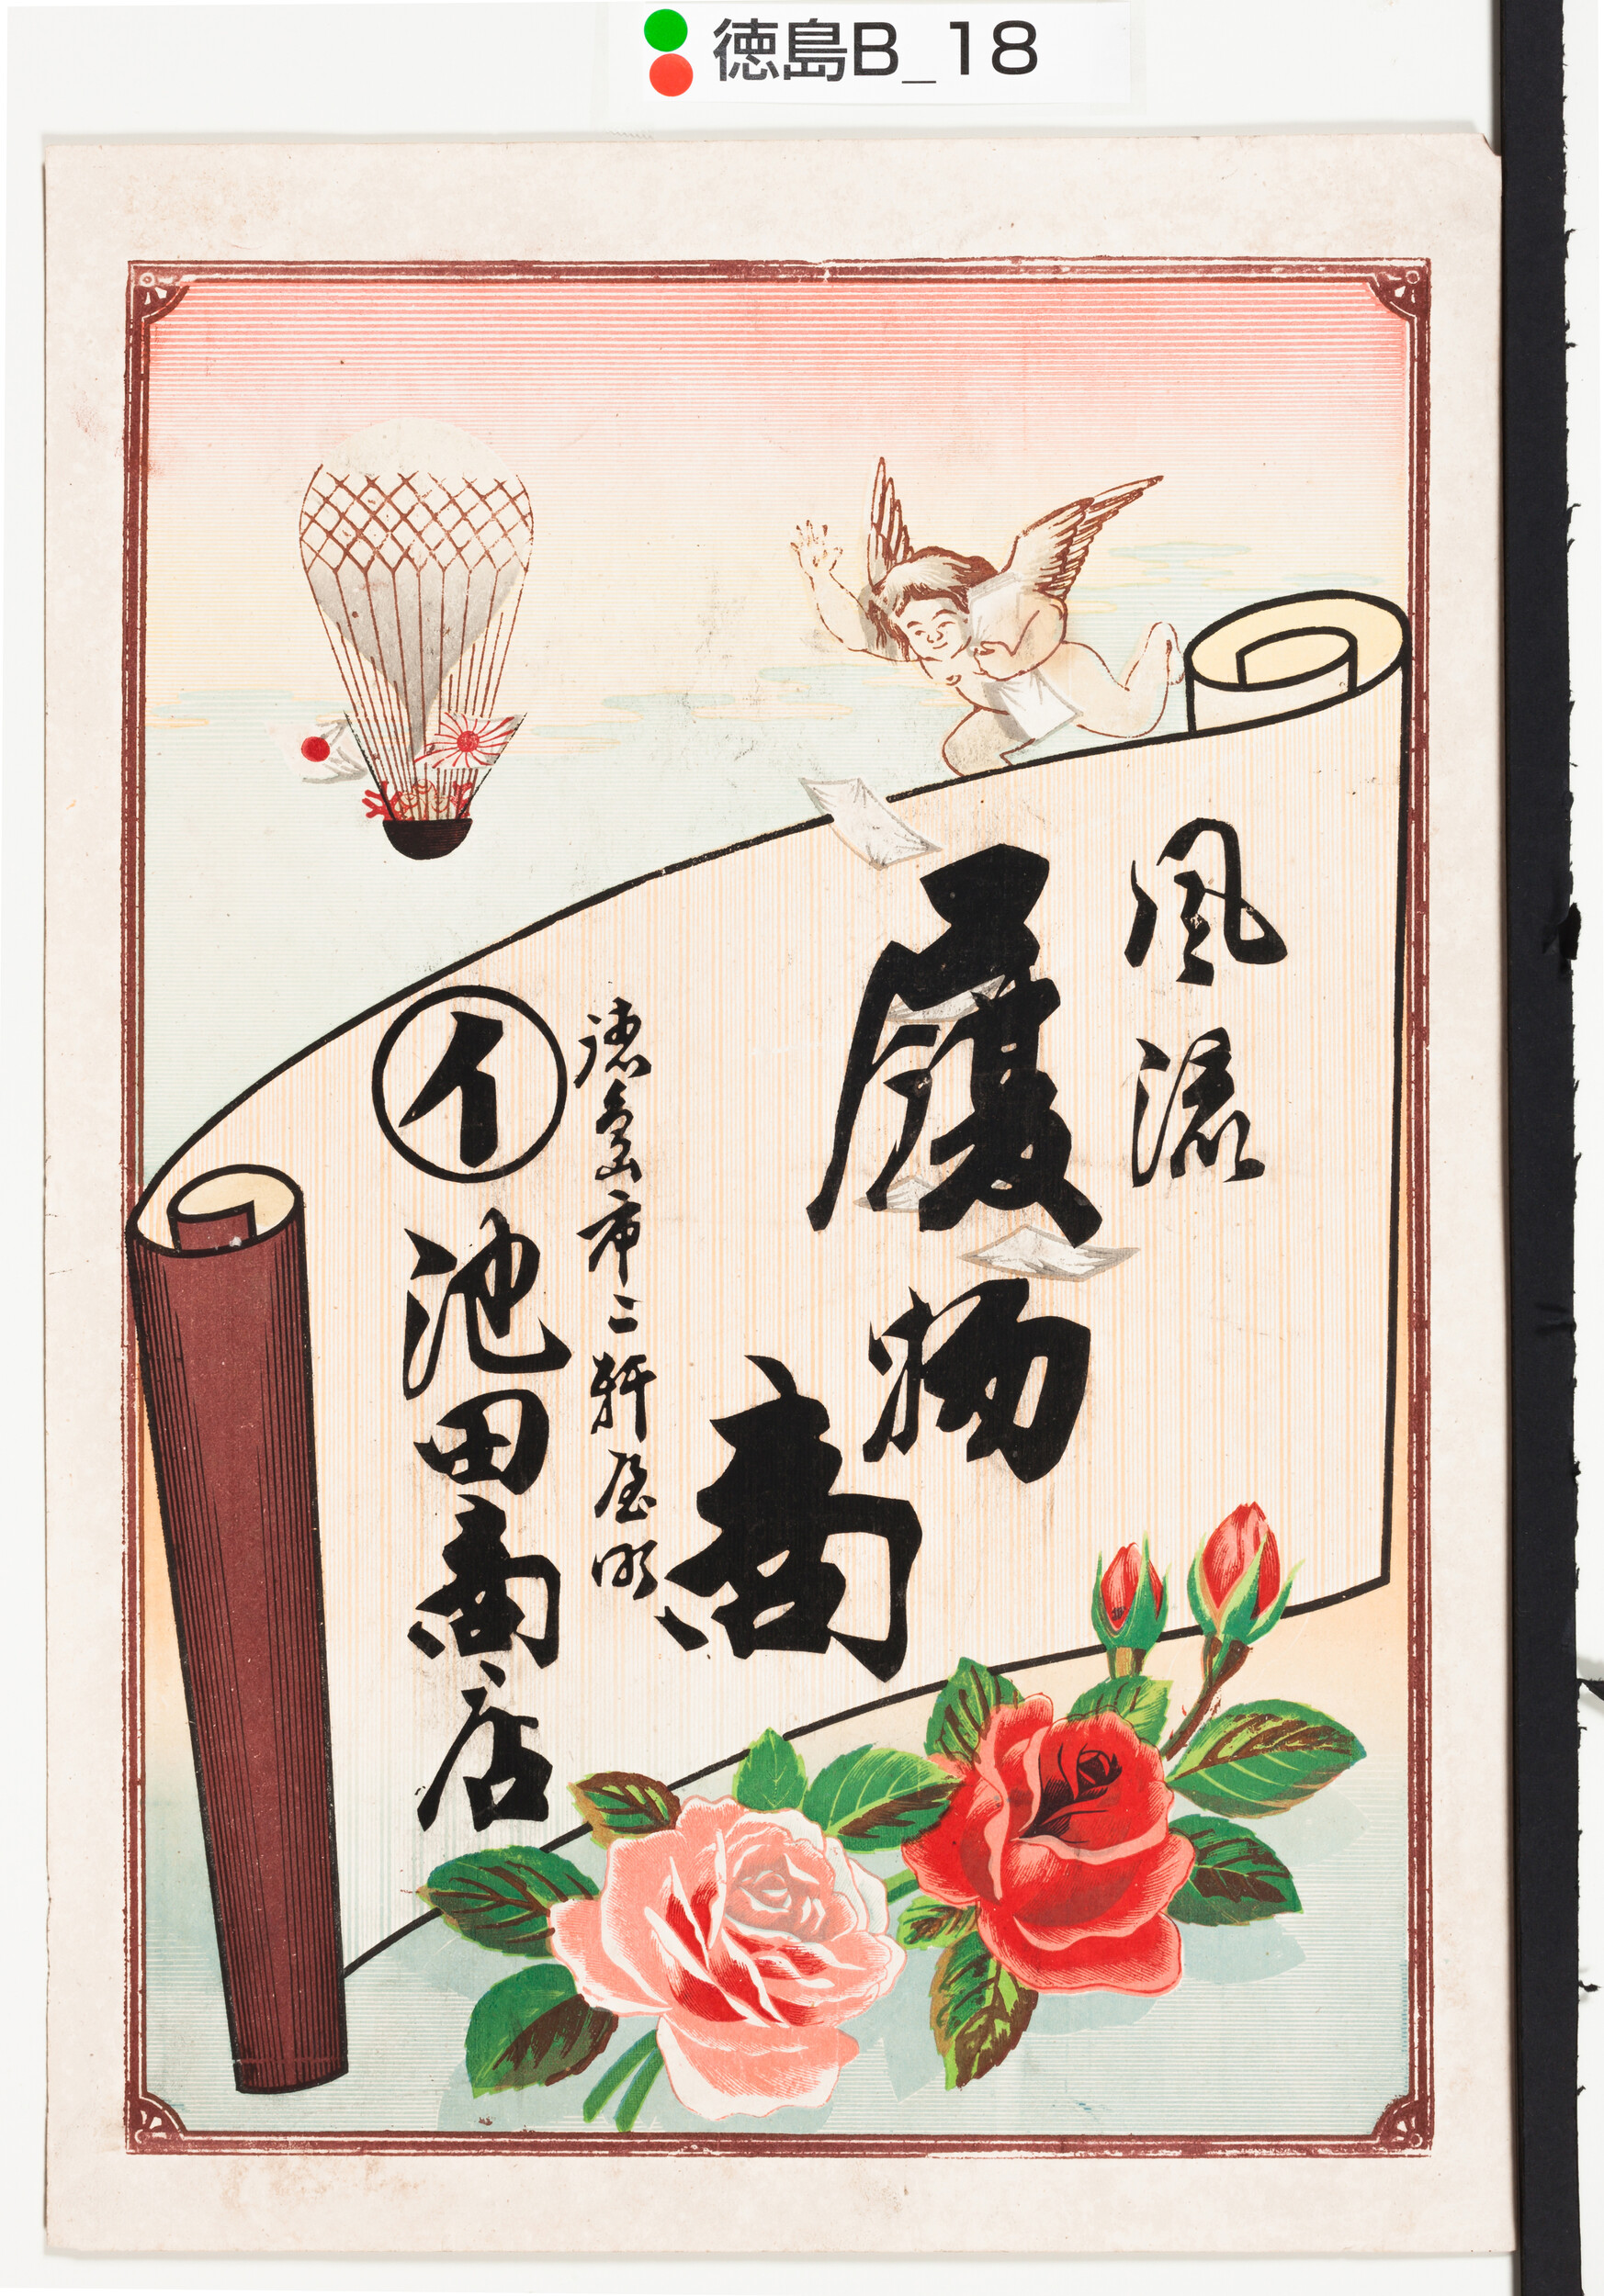 徳島B_18
風流
履物
商
徳島市二軒屋町
イ
池田商店